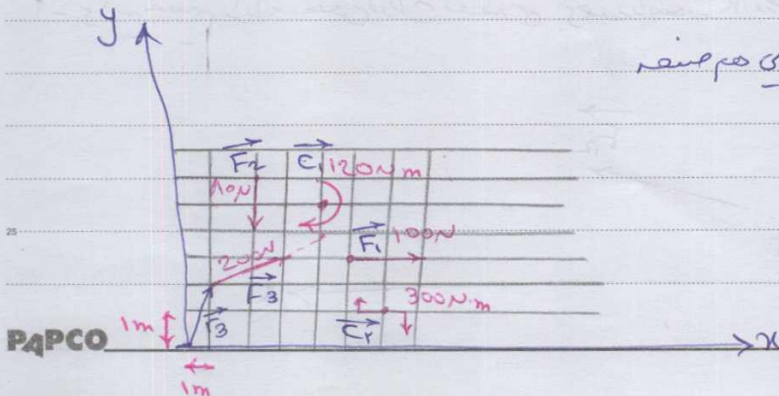 y
F₂ C₁ 120N m
80N
25
F₁ 100N
200N
F₃
300N.m
1m r₃ C₂
PAPCO x
1m